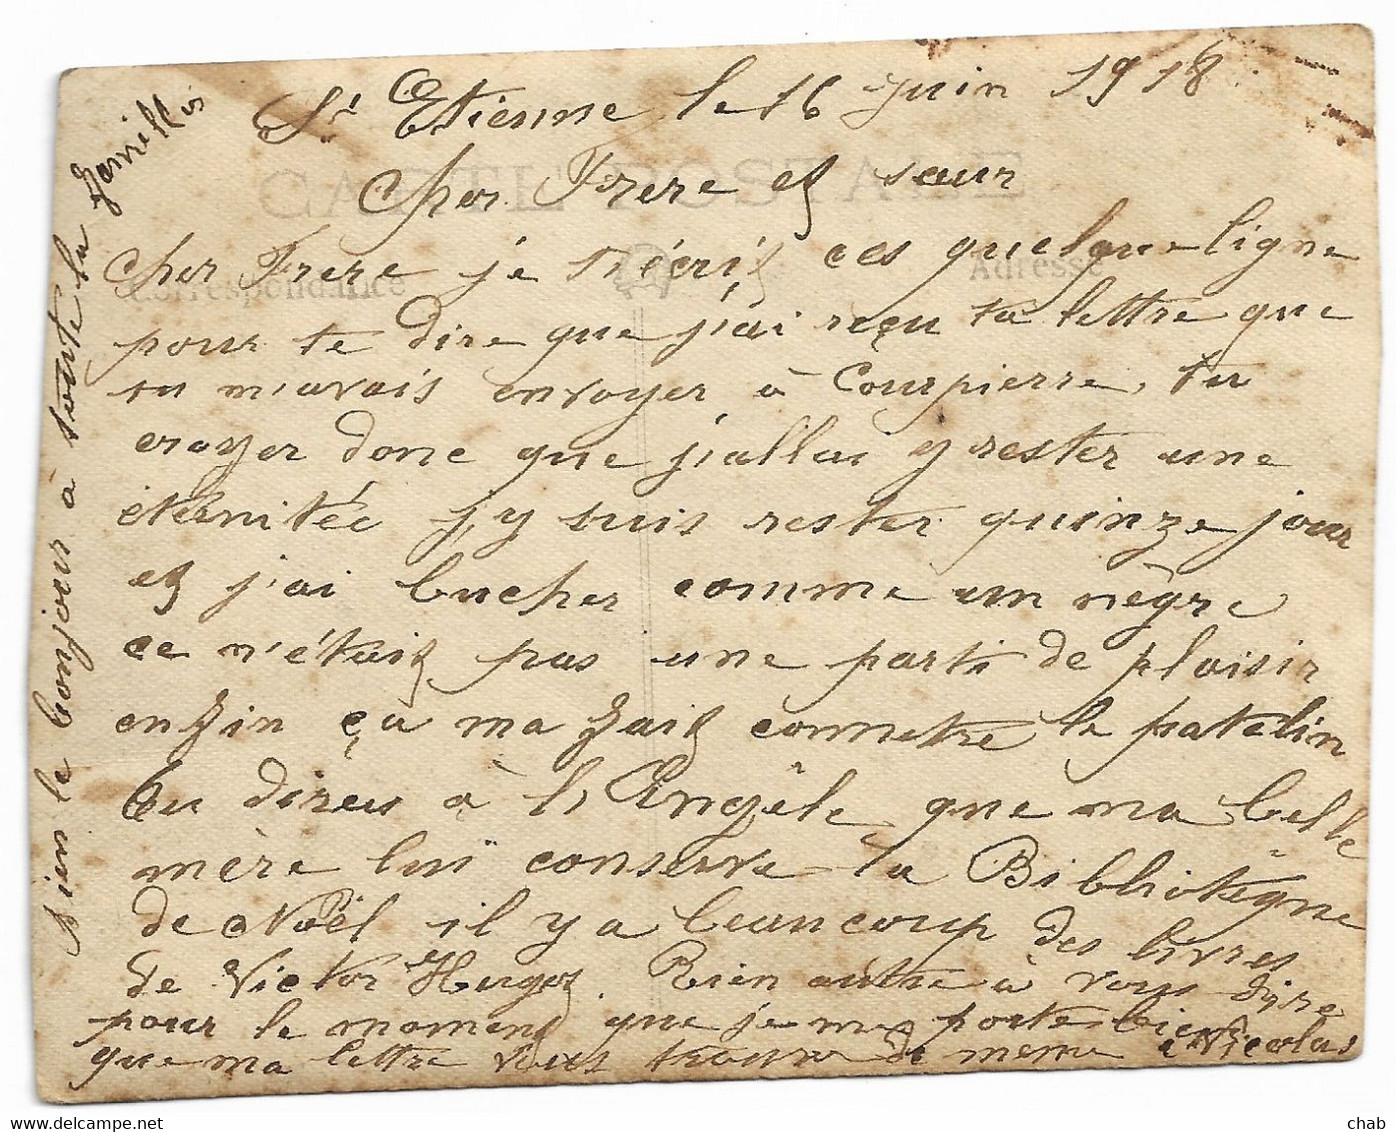 St Etienne le 16 juin 1918
CARTE POSTALE
Cher Frere et sœur
Cher Frere je t'écrit ces quelque ligne
Correspondance
Adresse
pour te dire que j'ai reçu ta lettre que
tu m'avais envoyer à Courpierre, tu
croyer donc que j'allai y rester une
éternitée j,y suis rester quinze jour
et j'ai bucher comme un nègre
ce n'était pas une parti de plaisir
enfin ça ma fait connetre le patelin
tu diras à l'Angêle que ma belle
mère lui conserve la Bibliotêque
de Noël il y a beaucoup des livres
de Victor Hugot. Rien autre à vous dire
pour le moment que je me porte bien
que ma lettre vous trouve de meme Nicolas
bien le bonjour à toute la famille
chab